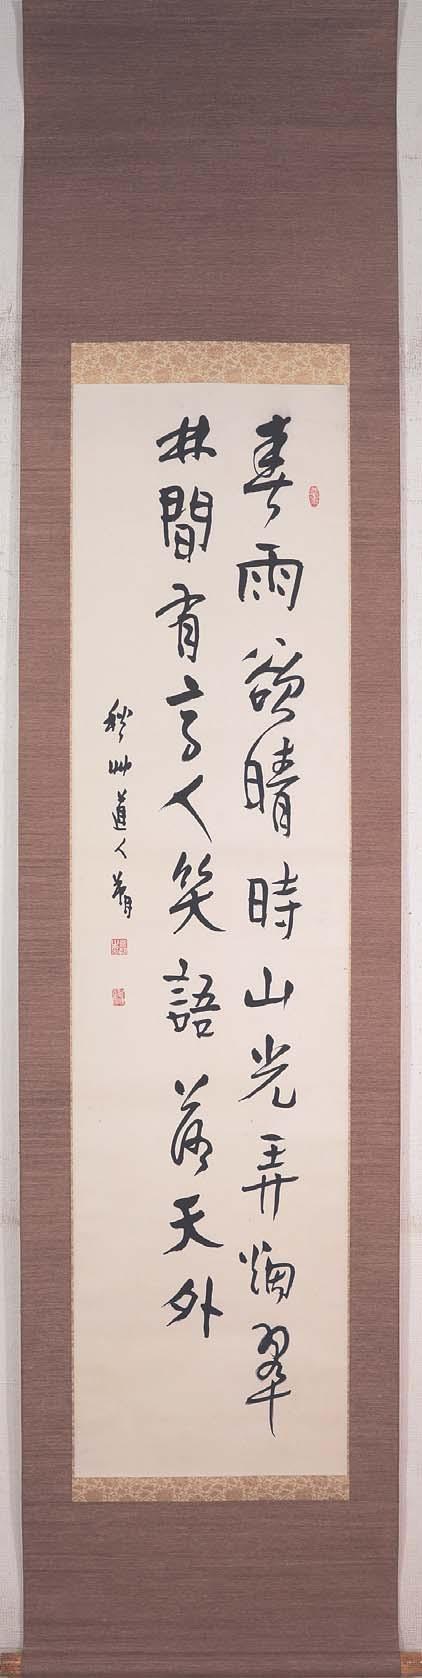 春雨欲晴時山光弄烟翠
林間有高人笑語落天外
秋艸道人